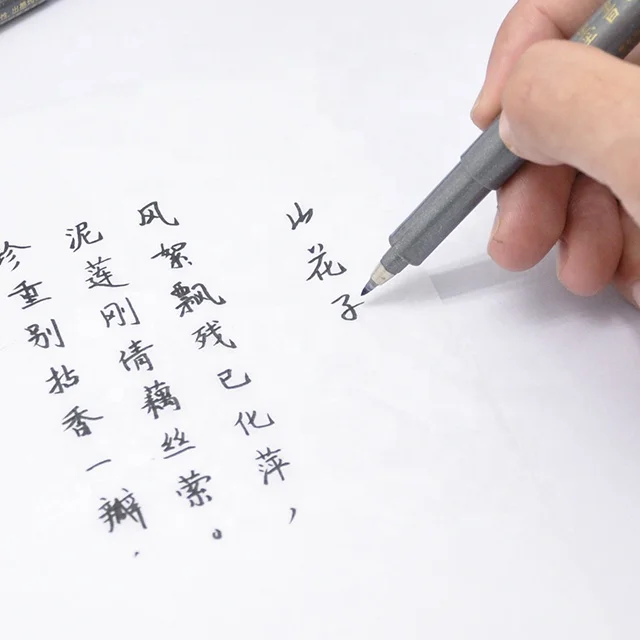 山花子
风絮飘残已化萍，
泥莲刚倩藕丝萦。
珍重别拈香一瓣，